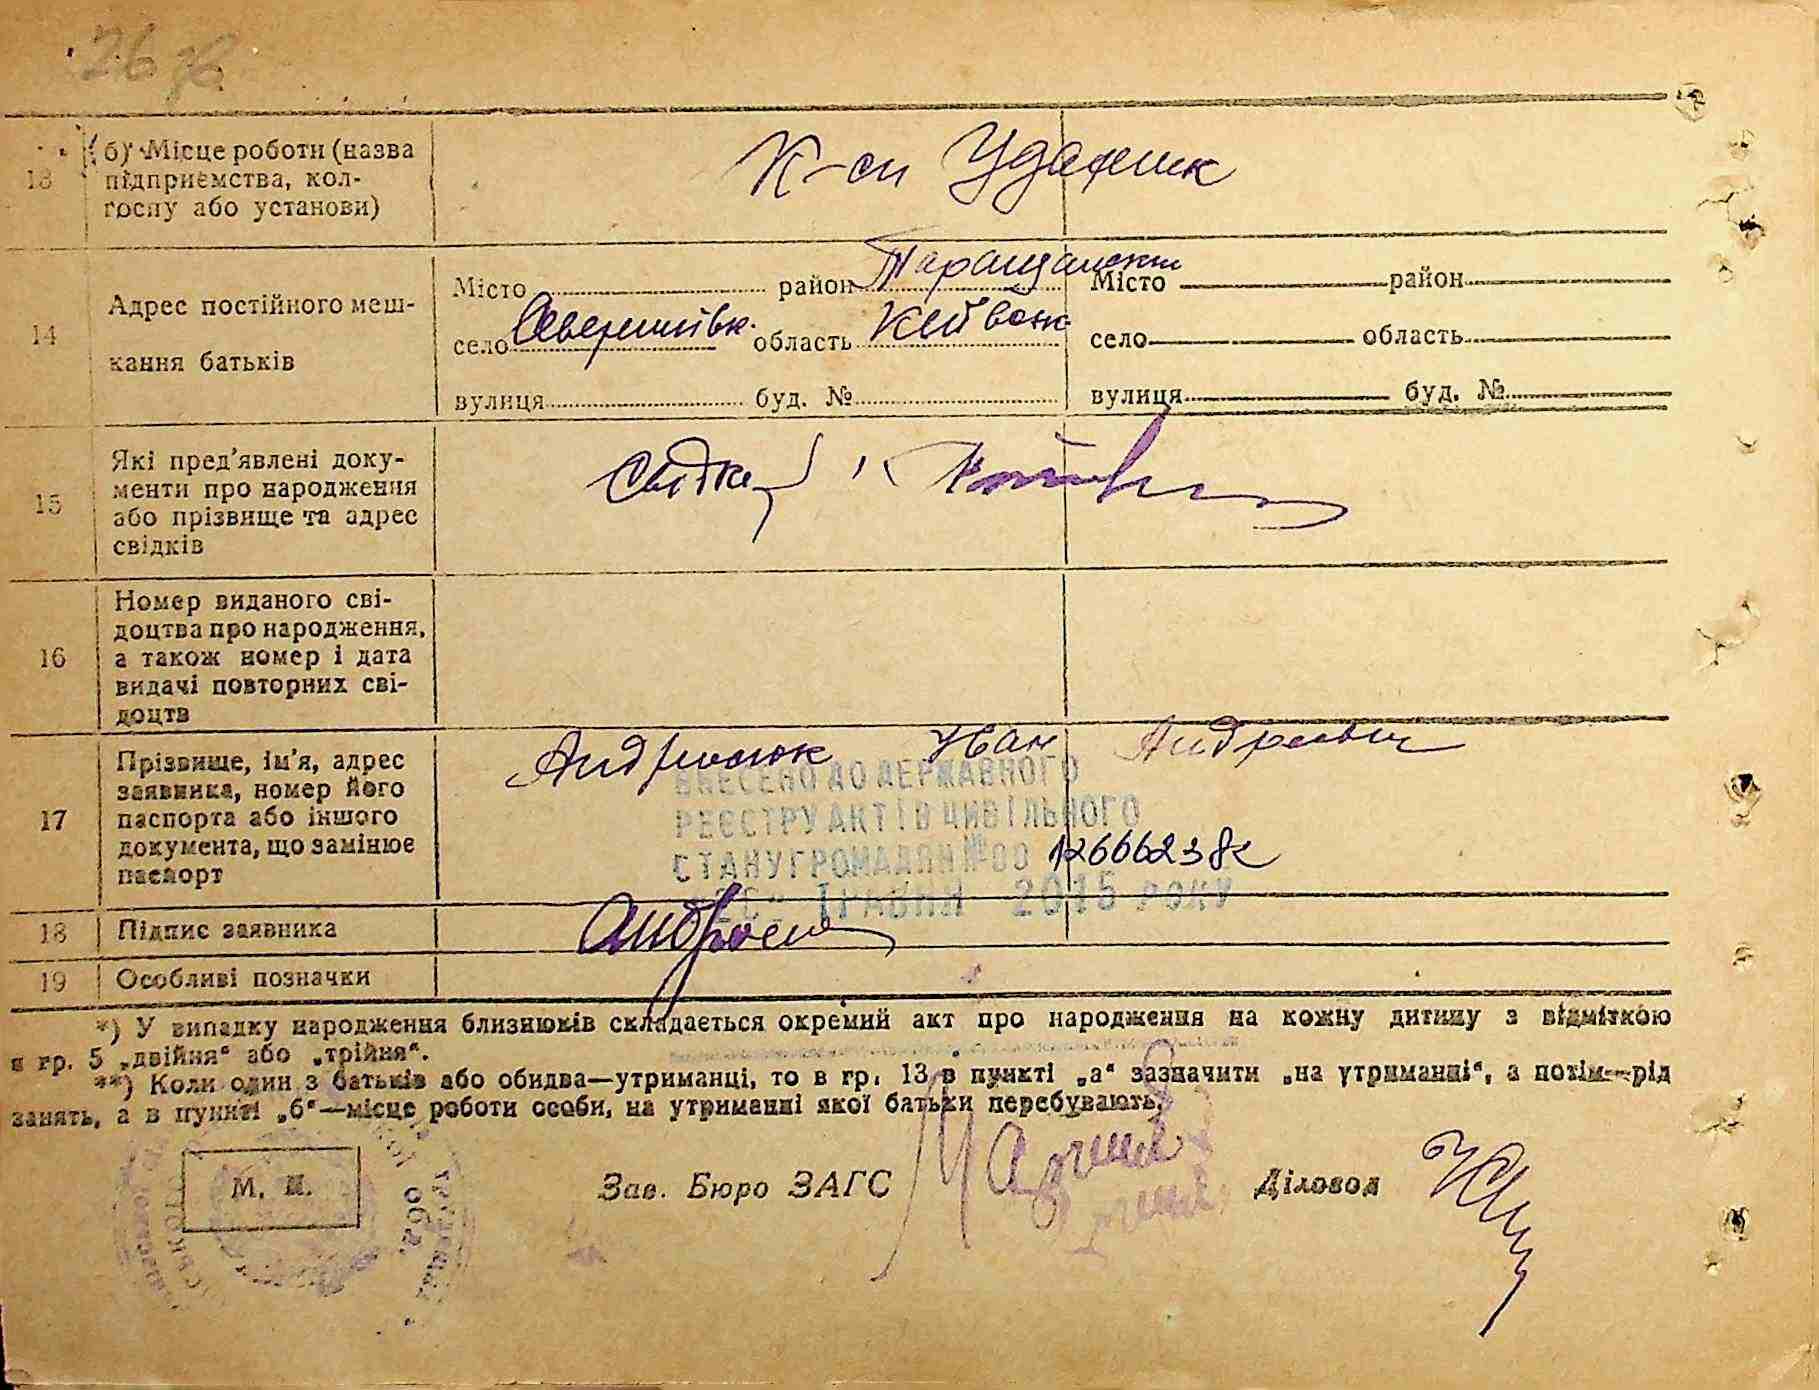 26 зв
13 б) Місце роботи (назва
підприємства, кол-
госпу або установи)
К-сп Ударник
14 Адрес постійного меш-
кання батьків
Місто район Таращанськи
село область Київськ
вулиця буд. №
Місто район
село область
вулиця буд. №
15 Які пред'явлені доку-
менти про народження
або прізвище та адрес
свідків
16 Номер виданого сві-
доцтва про народження,
а також номер і дата
видачі повторних сві-
доцтв
17 Прізвище, ім'я, адрес
заявника, номер його
паспорта або іншого
документа, що замінює
паспорт
Іван Андреевич
ВНЕСЕНО ДО ДЕРЖАВНОГО
РЕЄСТРУ АКТІВ ЦИВІЛЬНОГО
СТАНУ ГРОМАДЯН № 00
ТРАВНЯ 2015 РОКУ
18 Підпис заявника
19 Особливі позначки
*) У випадку народження близнюків складається окремий акт про народження на кожну дитину з відміткою
в гр. 5 „двійня“ або „трійня“.
**) Коли один з батьків або обидва—утриманці, то в гр. 13 в пункті „а“ зазначити „на утриманні“, а потім—рід
занять, а в пункті „б“—місце роботи особи, на утриманні якої батьки перебувають.
М. П.
Зав. Бюро ЗАГС
Діловод